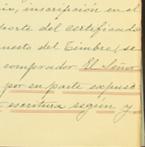 io, inscripción en el
porte del certificado
uesto del Timbre, se
comprador El Señor
por su parte expuso
escritura según y